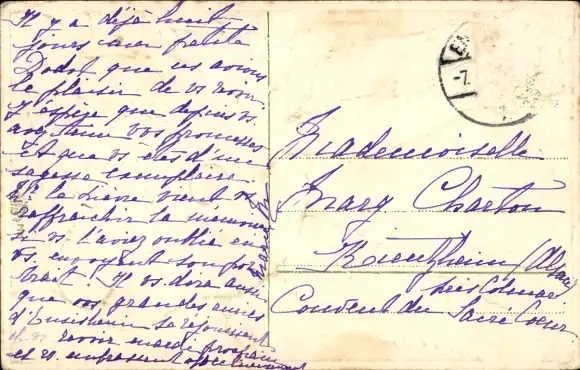 Il y a déjà huit
jours chère petite
Dodot que ns avons
le plaisir de vs revoir.
J'espère que depuis vs
avez tenu vos promesses
et que vs êtes d'une
sagesse exemplaire.
Le Lièvre vient vs
raffraichir la mémoire
si vs l'aviez oublié en
vs envoyant son por
trait! Il vs dira aussi
que vos grandes amies
d'Ensisheim se réjouissent
de vs revoir mardi prochain
et vs embrassent affectueusement
Mademoiselle
Mary Charton
Kientzheim (Alsace)
près Colmar
Couvent du Sacré Coeur